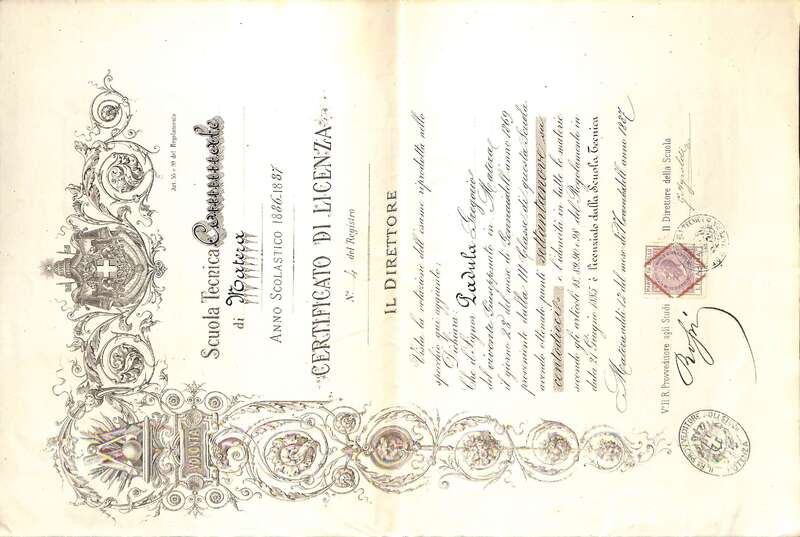 Art. 55 e 99 del Regolamento
Scuola Tecnica Comunale
di Matera
ANNO SCOLASTICO 1886-1887
CERTIFICATO DI LICENZA
N.° 4 del Registro
IL DIRETTORE
Vista la relazione dell'esame riprodotta nello
specchio qui aggiunto;
Dichiara
Che il Signor Padula Gregorio
del vivente Giuseppe nato in Matera
il giorno 28 del mese di Gennaio dell'anno 1869
proveniente dalla III Classe di questa Scuola
avendo ottenuto punti settantanove su
centodieci e l'idoneità in tutte le materie
secondo gli articoli 18, 89, 90 e 98 del Regolamento in
data 21 Giugno 1885 è licenziato dalla Scuola Tecnica
Matera addì 12 del mese di Novembre dell'anno 1887
V° Il R. Provveditore agli Studi
Il Direttore della Scuola
Rossi
VOLONTAS